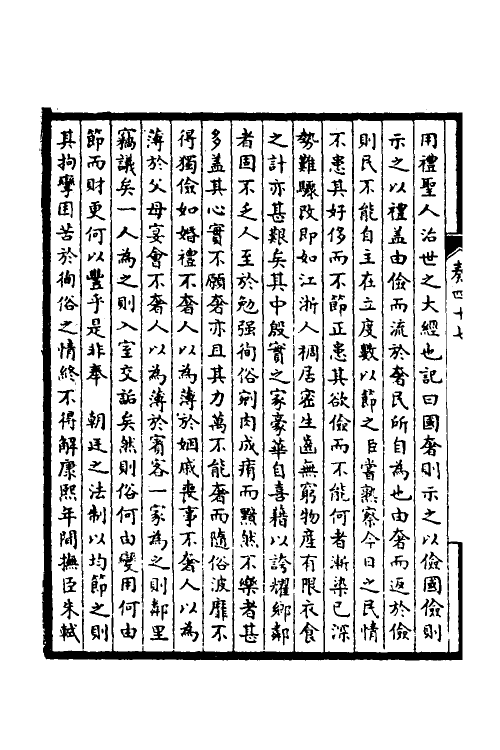 用禮聖人治世之大經也記曰國奢則示之以儉國儉則
示之以禮蓋由儉而流於奢民所自為也由奢而返於儉
則民不能自主在立度數以節之臣嘗熟察今日之民情
不患其好侈而不節正患其欲儉而不能何者漸染已深
勢難驟改即如江浙人稠居密生齒無窮物產有限衣食
之計亦甚艱矣其中殷實之家豪華自喜藉以誇耀鄉鄰
者固不乏人至於勉强徇俗剜肉成瘡而黯然不樂者甚
多盖其心實不願奢亦且其力萬不能奢而隨俗波靡不
得獨儉如婚禮不奢人以為薄於姻戚喪事不奢人以為
薄於父母宴會不奢人以為薄於賓客一家為之則鄰里
竊議矣一人為之則入室交詬矣然則俗何由變用何由
節而財更何以豐乎是非奉　朝廷之法制以均節之則
其拘攣困苦於徇俗之情終不得解康熙年間撫臣朱軾
卷四十七